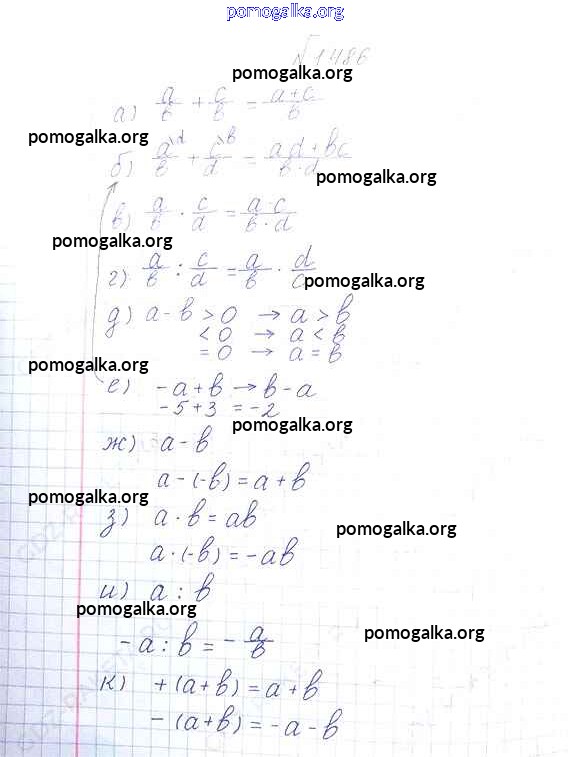 pomogalka.org
№1486
pomogalka.org
а) a/b + c/b = a+c/b
pomogalka.org
б) a\d/b + c\b/d = ad+bc/b·d
pomogalka.org
в) a/b · c/d = a·c/b·d
pomogalka.org
г) a/b : c/d = a/b · d/c
pomogalka.org
д) a-b > 0 → a > b
< 0 → a < b
= 0 → a = b
pomogalka.org
е) -a+b → b-a
-5+3 = -2
pomogalka.org
ж) a-b
a-(-b) = a+b
pomogalka.org
з) a·b = ab
pomogalka.org
a·(-b) = -ab
и) a : b
pomogalka.org
-a : b = - a/b
pomogalka.org
к) +(a+b) = a+b
-(a+b) = -a-b